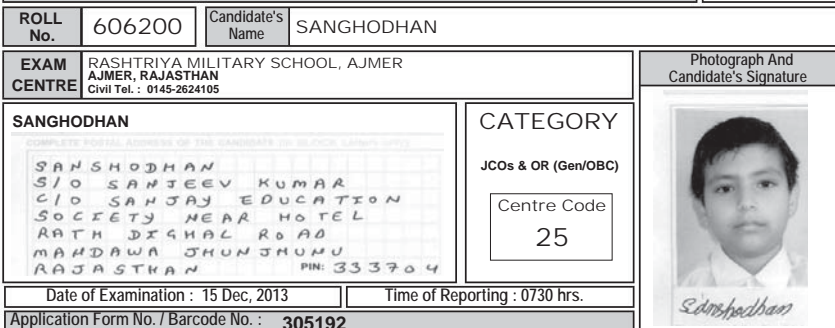 ROLL No. 606200 Candidate's Name SANGHODHAN
EXAM CENTRE RASHTRIYA MILITARY SCHOOL, AJMER
AJMER, RAJASTHAN
Civil Tel. : 0145-2624105
Photograph And
Candidate's Signature
SANGHODHAN
COMPLETE POSTAL ADDRESS OF THE CANDIDATE (In BLOCK Letters only)
SANSHODHAN
S/O SANJEEV KUMAR
C/O SANJAY EDUCATION
SOCIETY NEAR HOTEL
RATH DIGHAL ROAD
MANDAWA JHUNJHUNU
RAJASTHAN PIN: 333704
CATEGORY
JCOs & OR (Gen/OBC)
Centre Code
25
Sanshodhan
Date of Examination : 15 Dec, 2013 Time of Reporting : 0730 hrs.
Application Form No. / Barcode No. : 305192